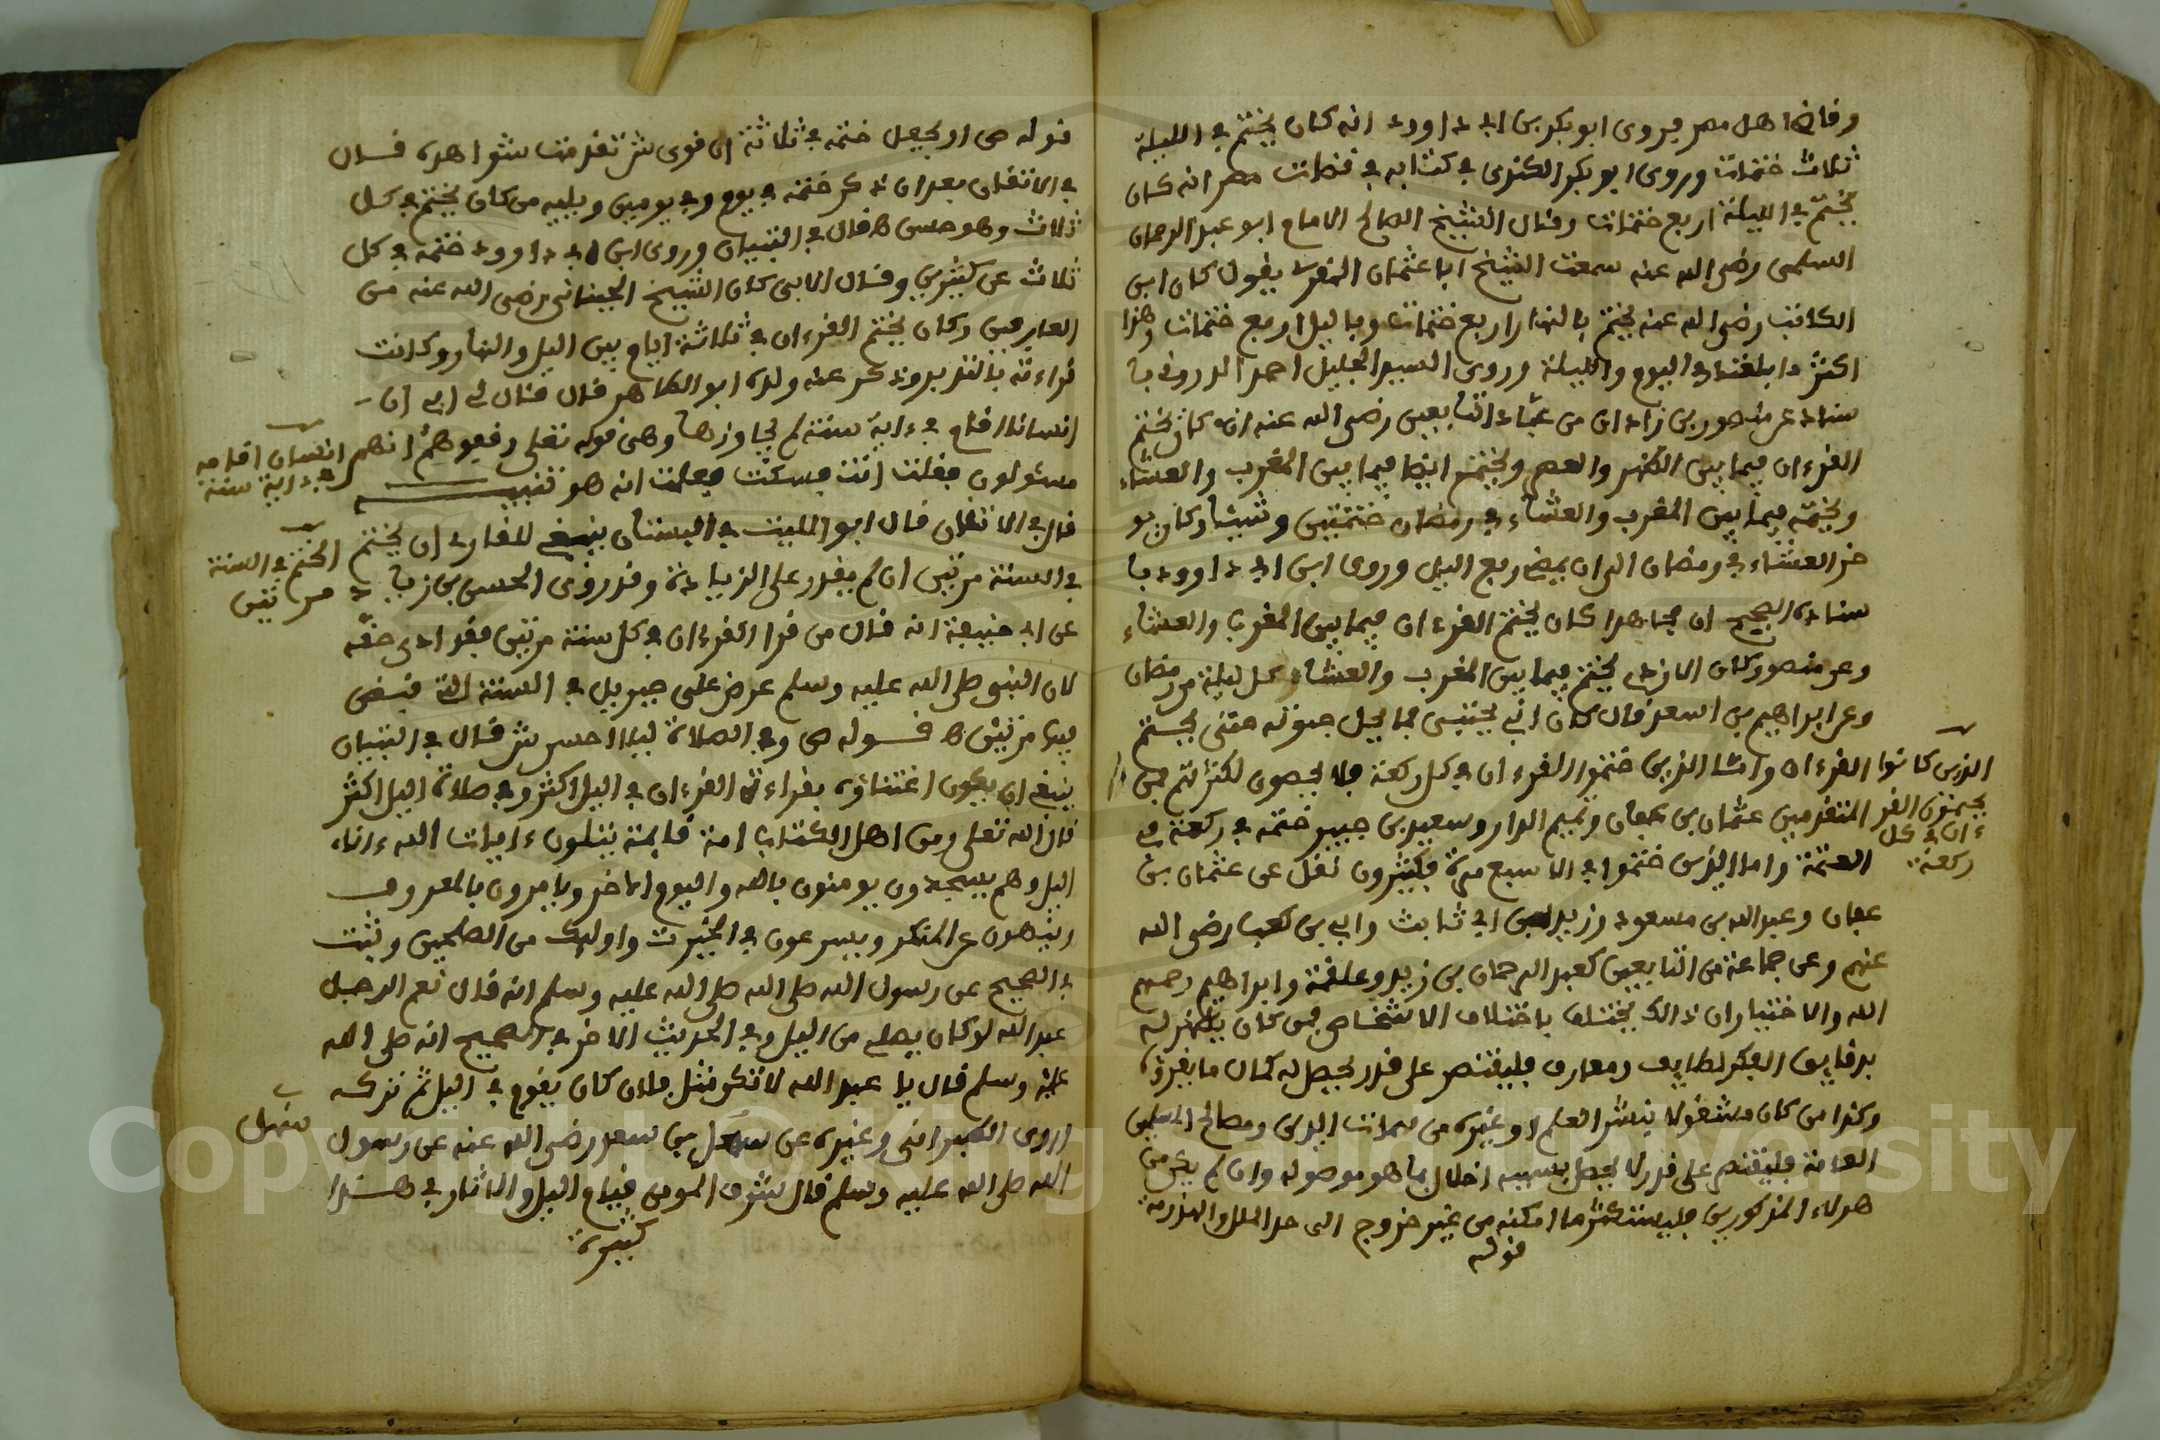 وقاضي اهل مصر فروى ابو بكر بن ابي داوود انه كان يختم في الليلة
ثلاث ختمات وروى ابو بكر الكندي في كتابه في قضات مصر انه كان
يختم في الليلة اربع ختمات وقال الشيخ الصالح الامام ابو عبد الرحمان
السلمي رضي الله عنه سمعت الشيخ ابا عثمان المغربي يقول كان ابن
الكاتب رضي الله عنه يختم بالنهار اربع ختمات وبالليل اربع ختمات وهذا
اكثر ما بلغنا في اليوم والليلة وروى السيد الجليل احمد الدورقي با
سناده عن منصور بن زاذان من عباد التابعين رضي الله عنه انه كان يختم
القرءان فيما بين الظهر والعصر ويختم ايضا فيما بين المغرب والعشاء
ويختمه فيما بين المغرب والعشاء في رمضان ختمتين وشيئا وكان يو
خر العشاء في رمضان الى ان يمضي ربع اليل وروى ابن ابي داوود با
سناده الصحيح ان مجاهدا كان يختم القرءان فيما بين المغرب والعشاء
وعن منصور كان الازدي يختم فيما بين المغرب والعشاء كل ليلة من رمضان
وعن ابراهيم بن اسعد قال كان ابي يحتبي فما يحل حبوته حتى يختم
القرءان واما الذين ختموا القرءان في كل ركعة فلا يحصون لكثرتهم فمن
الذين كانوا
يختمون القر
ءان في كل
ركعة
المتقدمين عثمان بن عفان وتميم الدار وسعيد بن جبير ختمه في ركعة في
العتمة واما الذين ختموا في الاسبع مرة فكثيرون نقل عن عثمان بن
عفان وعبد الله بن مسعود وزيد بن ابي ثابت وابي بن كعب رضي الله
عنهم وعن جماعة من التابعين كعبد الرحمان بن زيد وعلقمة وابراهيم رحمهم
الله والاختيار ان ذالك يختلف باختلاف الاشخاص فمن كان يظهر له
بدقايق الفكر لطايف ومعارف فليقتصر على قدر يحصل له كمال ما يقرؤه
وكذا من كان مشغولا بنشر العلم او غيره من مهمات الدين ومصالح المسلمين
العامة فليقتصر على قدر لا يحصل بسببه اخلال بما هو موصوله وان لم يكن من
هولاء المذكورين فليستكثر ما امكنه من غير خروج الى حد الملل والهذرمة
قوله
قوله ص او يجعل ختمه في ثلاثة ان قوى ش تقدمت شواهده قال
في الاتقان بعد ان ذكر ختمه في يوم وفي يومين ويليه من كان يختم في كل
ثلاث وهو حسن ه قال في التبيان وروى ابن ابي داوود ختمه في كل
ثلاث عن كثيرين وقال الابي كان الشيخ الجبناني رضي الله عنه من
العارفين وكان يختم القرءان في ثلاثة ايام بين اليل والنهار وكانت
قراءته بالتدبر وذكر عنه ولده ابو الطاهر قال قال لي ابي ان
انسانا اقام في ءاية سنة لم يجاوزها وهي قوله تعلى وقفوهم انهم
انسان اقام
في ءاية سنة
مسئولون فقلت انت فسكت فعلمت انه هو تنبيه
قال في الاتقان قال ابو الليث في البستان ينبغي للقارئ ان يختم
الختم في السنة
مرتين
في السنة مرتين ان لم يقدر على الزيادة وقد روى الحسن بن زياد
عن ابي حنيفة انه قال من قرا القرءان في كل سنة مرتين فقد ادى حقه
لان النبي صلى الله عليه وسلم عرض على جبريل في السنة التي قبض
فيها مرتين ه قوله ص وفي الصلاة ليلا احسن ش قال في التبيان
ينبغي ان يكون اعتناؤه بقراءة القرءان في اليل اكثر وفي صلاة اليل اكثر
قال الله تعلى ومن اهل الكتاب امة قايمة يتلون ءايات الله ءاناء
اليل وهم يسجدون يومنون بالله واليوم الاخر ويامرون بالمعروف
وينهون عن المنكر ويسرعون في الخيرت واوليك من الصلحين وثبت
في الصحيح عن رسول الله صلى الله صلى الله عليه وسلم انه قال نعم الرجل
عبد الله لو كان يصلي من اليل وفي الحديث الاخر في الصحيح انه صلى الله
عليه وسلم قال يا عبد الله لا تكن مثل فلان كان يقوم في اليل ثم تركه
وروى الطبراني وغيره عن سهل بن سعد رضي الله عنه عن رسول
سهل
الله صلى الله عليه وسلم قال شرف المومن قيام اليل والاثار في هذا
كثيرة
Copyright © King Saud University